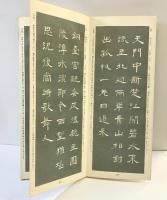 天門中斷楚江開碧水東
流至北廻兩岸青山相對
出孤帆一片日邊來
銅臺宮觀委灰塵魏主園
陵漳水濱即今西望猶堪
思況復當時歌舞人